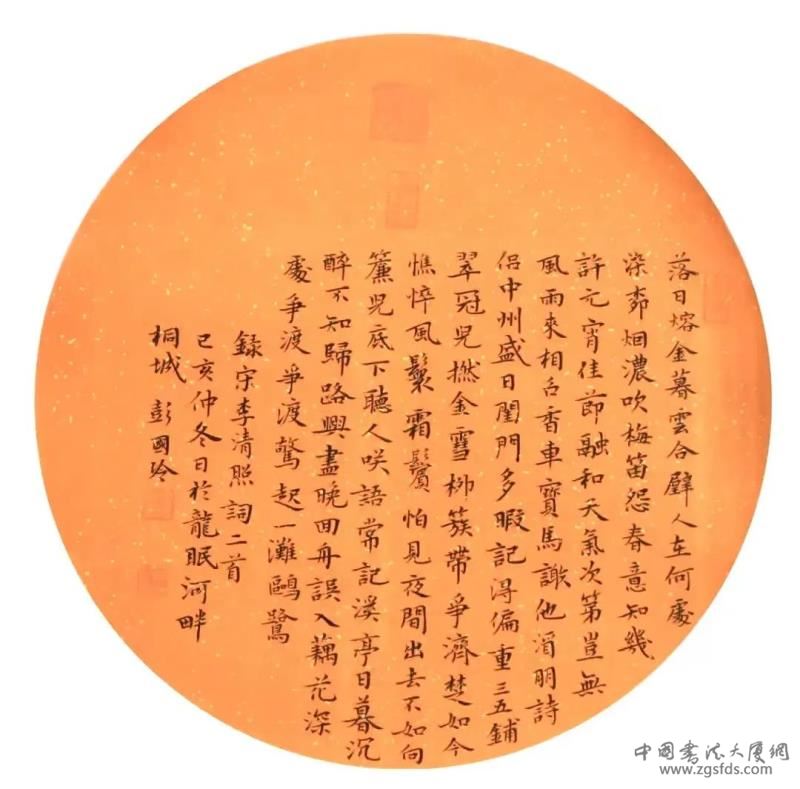 落日熔金暮雲合璧人在何處
染桺烟濃吹梅笛怨春意知幾
許元宵佳節融和天氣次第豈無
風雨來相召香車寶馬謝他酒朋詩
侣中州盛日閨門多暇記得偏重三五鋪
翠冠兒撚金雪柳簇帶爭濟楚如今
憔悴風鬟霜鬢怕見夜間出去不如向
簾兒底下聽人咲語常記溪亭日暮沉
醉不知歸路興盡晚回舟誤入藕花深
處爭渡爭渡驚起一灘鷗鷺
録宋李清照詞二首
己亥仲冬日於龍眠河畔
桐城 彭國玲
中國書法大廈網
www.zgsfds.com